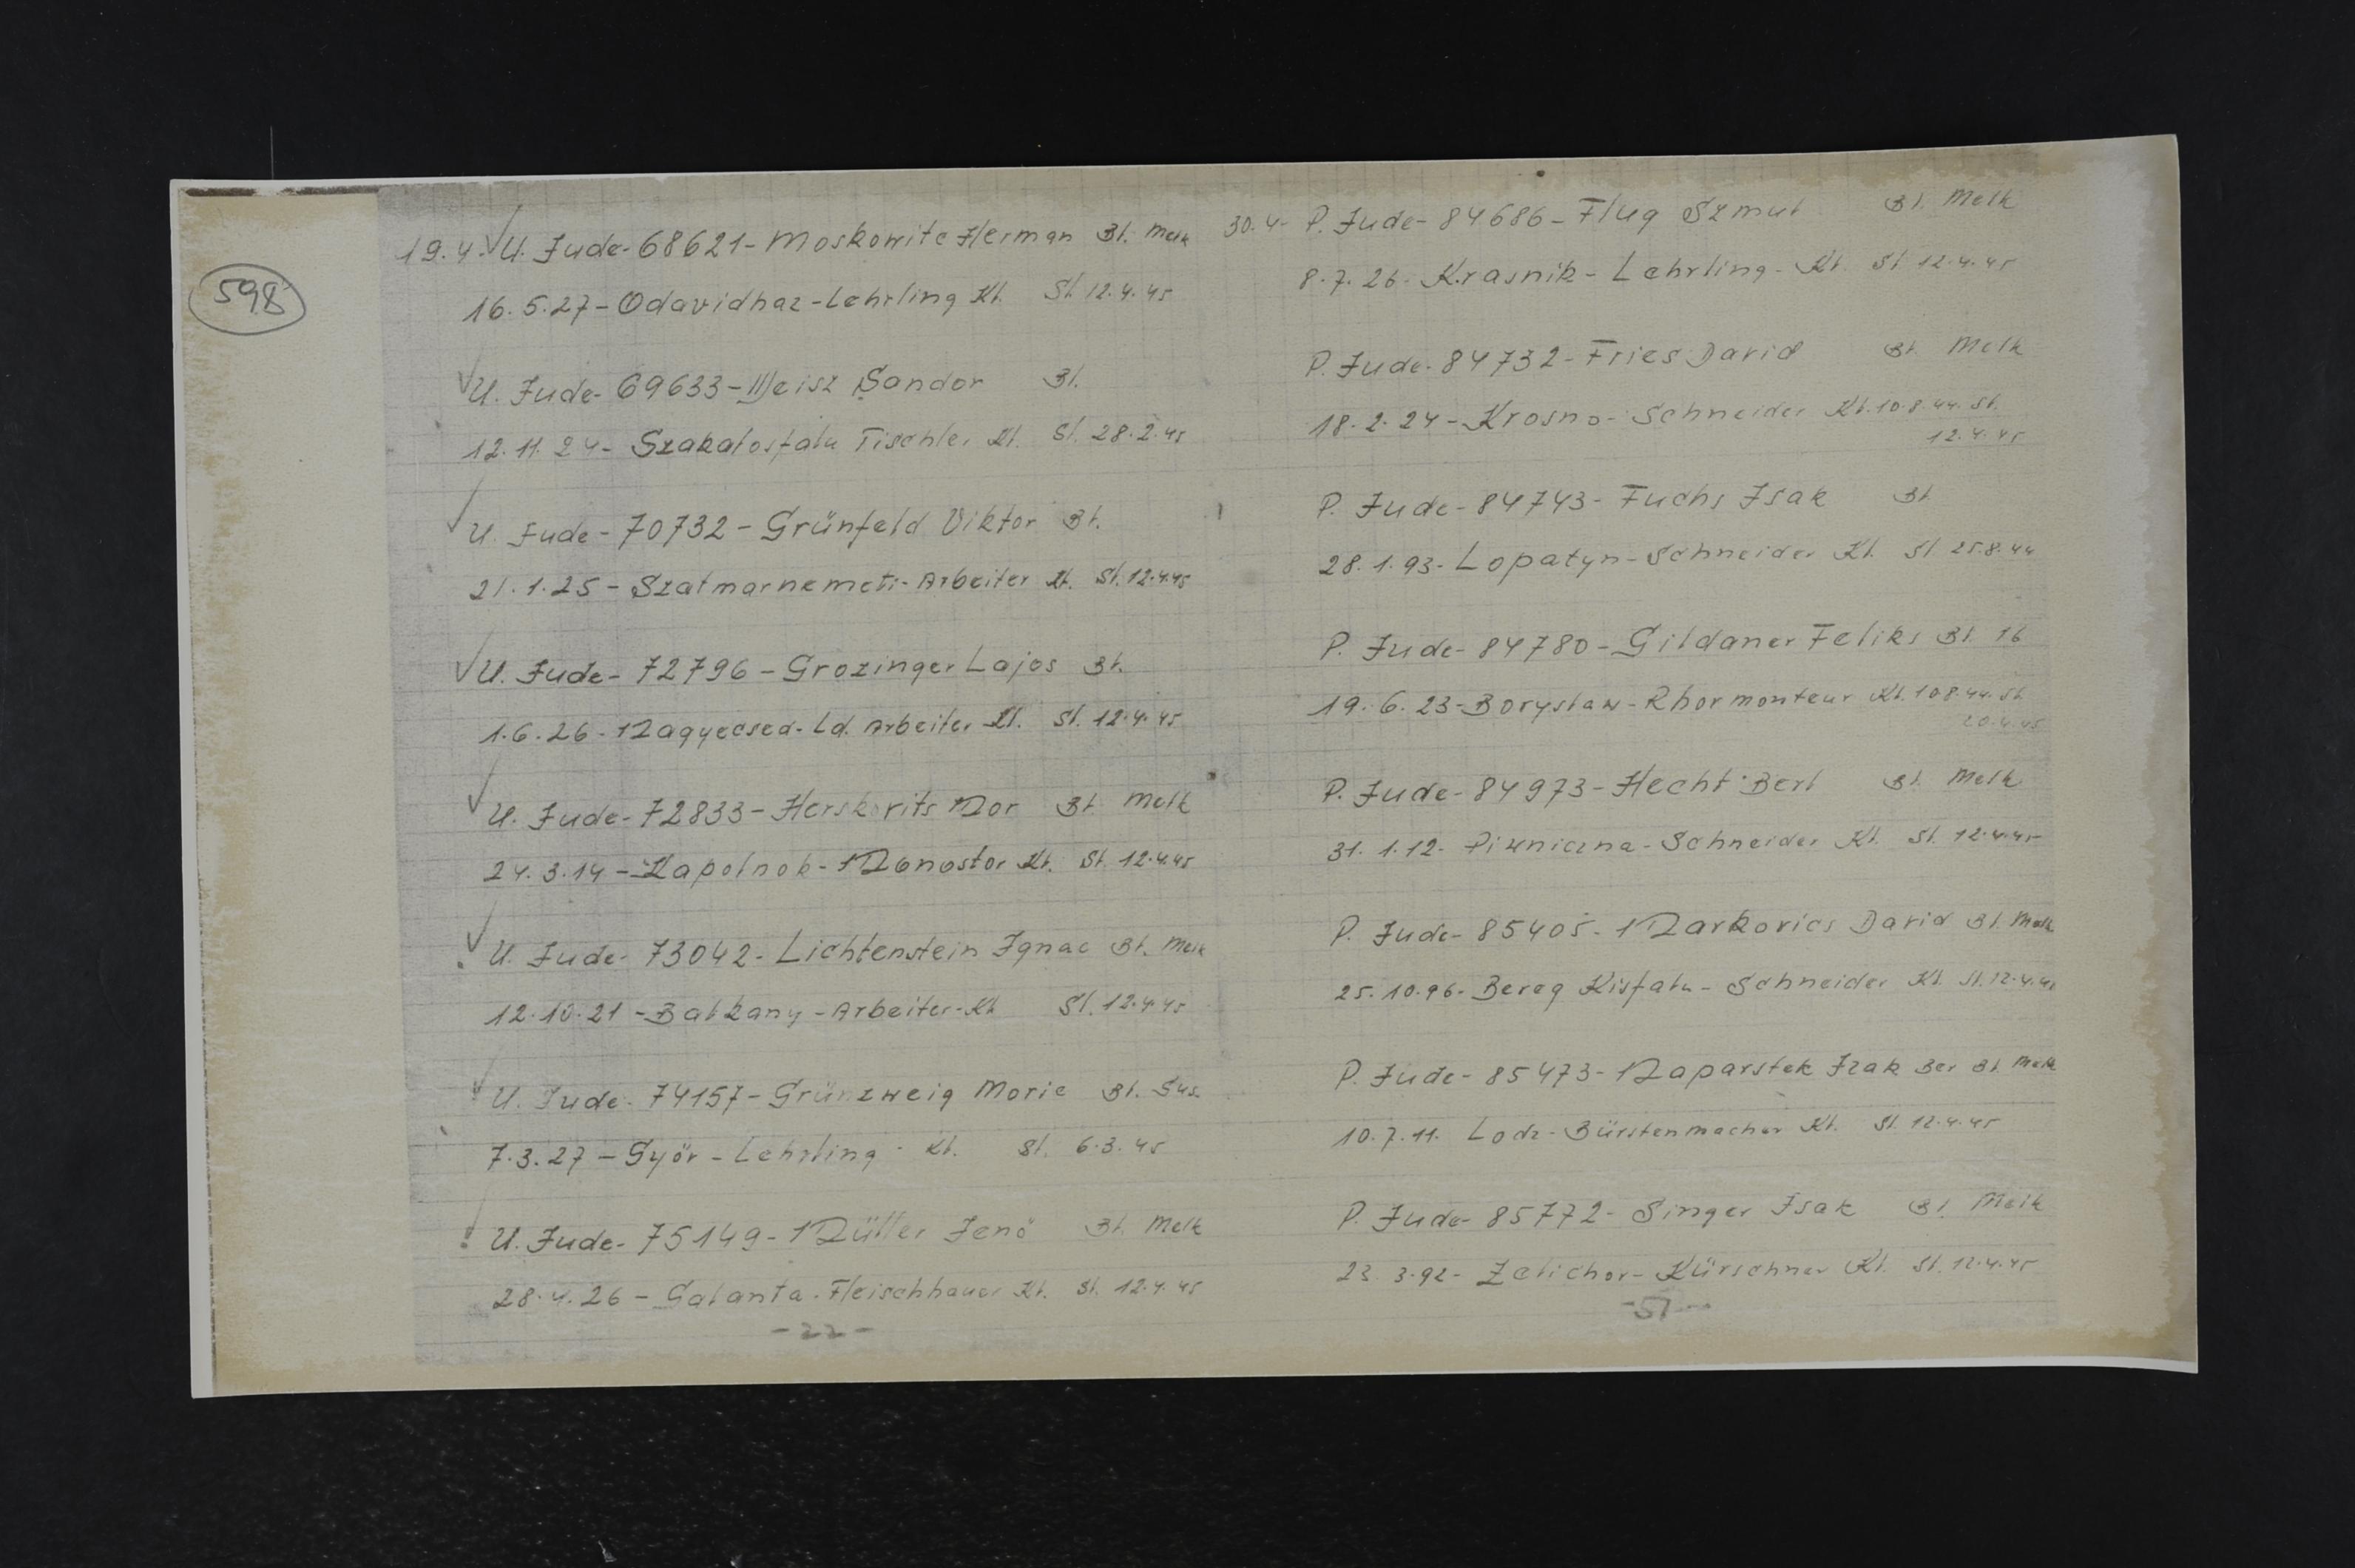 598
19.4. U. Jude - 68621 - Moskowite Herman Bl. Melk
16.5.27 - Odavidhaz - Lehrling Kl. St. 12.4.45
U. Jude - 69633 - Weisz Sandor Bl.
12.11.24 - Szakalosfalu Tischler Kl. St. 28.2.45
U. Jude - 70732 - Grünfeld Viktor Bl.
21.1.25 - Szatmarnemeti - Arbeiter Kl. St. 12.4.45
U. Jude - 72796 - Grozinger Lajos Bl.
1.6.26 - Nagyecsed - Ld. Arbeiter Kl. St. 12.4.45
U. Jude - 72833 - Herskovits Mor Bl. Melk
24.3.14 - Kapolnok - Monostor Kl. St. 12.4.45
U. Jude - 73042 - Lichtenstein Ignac Bl. Melk
12.10.21 - Balkany - Arbeiter - Kl. St. 12.4.45
U. Jude - 74157 - Grünzweig Moric Bl. Gus.
7.3.27 - Györ - Lehrling - Kl. St. 6.3.45
U. Jude - 75149 - Müller Jenö Bl. Melk
28.4.26 - Galanta - Fleischhauer Kl. St. 12.4.45
- 22 -
30.4 - P. Jude - 84686 - Flug Szmul Bl. Melk
8.7.26 - Krasnik - Lehrling - Kl. St. 12.4.45
P. Jude - 84732 - Fries David Bl. Melk
18.2.24 - Krosno - Schneider Kl. 10.8.44. St.
12.4.45
P. Jude - 84743 - Fuchs Isak Bl.
28.1.93 - Lopatyn - Schneider Kl. St. 25.8.44
P. Jude - 84780 - Gildaner Feliks Bl. 16
19.6.23 - Boryslaw - Rhormonteur Kl. 10.8.44. St.
20.4.45
P. Jude - 84973 - Hecht Berl Bl. Melk
31.1.12 - Piwniczna - Schneider Kl. St. 12.4.45
P. Jude - 85405 - Markovics David Bl. Melk
25.10.96 - Bereg Kisfalu - Schneider Kl. St. 12.4.45
P. Jude - 85473 - Naparstek Izak Ber Bl. Melk
10.7.11. Lodz - Bürstenmacher Kl. St. 12.4.45
P. Jude - 85772 - Singer Isak Bl. Melk
23.3.92 - Zelichow - Kürschner Kl. St. 12.4.45
- 51 -